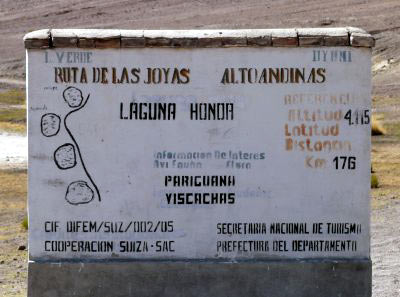 L. VERDE
RUTA DE LAS JOYAS ALTOANDINAS
LAGUNA HONDA
REFERENCIAS
Altitud 4.115
Latitud
Distancia
Km 176
Informacion De Interes
Avi Fauna Flora
PARIGUANA
VISCACHAS
CIF DIFEM/SUZ/002/05
COOPERACION SUIZA-SAC
SECRETARIA NACIONAL DE TURISMO
PREFECTURA DEL DEPARTAMENTO